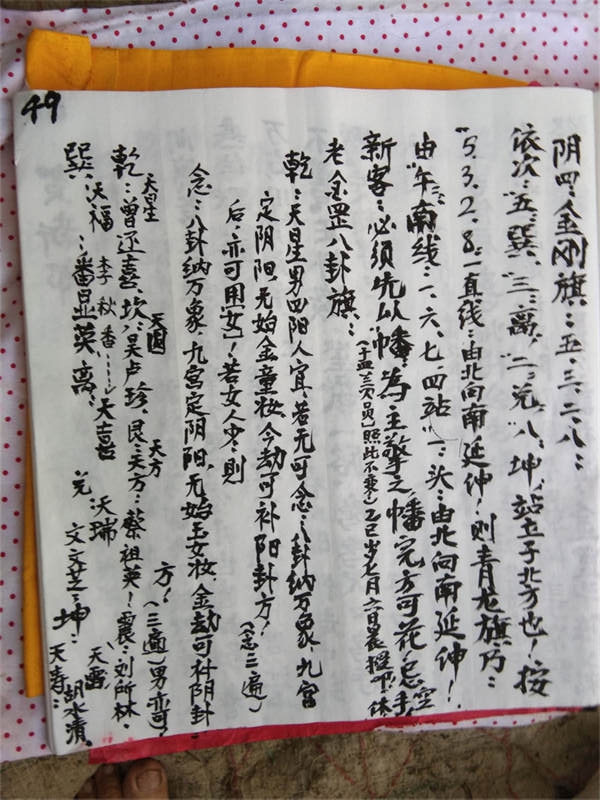 49
阴四:金刚旗:五、三、二、八:
依次:“五、巽、三:离、“二、兑、八、坤、站立于北方也!按
“5.3.2.8.”直线:由北向南延伸!则青龙旗乃:
由“午:南线:一、六、七、四站“一:头:由北向南延伸!
新客:必须先以“幡、为主擎之、幡完方可花、
老金罡八卦旗:
乾:天星男四阳人宜、若无可念:八卦纳万象、九宫
定阴阳、无始金童妆、今劫可补阳卦方!(念三遍)
后、亦可用女!若女人少、则
念:八卦纳万象、九宫定阴阳、无始玉女妆、金劫可补阴卦
方!(三遍)男亦可!
天星
乾:曾还喜、坎:吴卢珍、艮:天方:蔡祖英!震:刘所林、
天国
天方
天雷
巽:天福:番显英、离:
李秋香……天喜
兑 天瑞
文文芝:坤:
胡水清、
天寿: